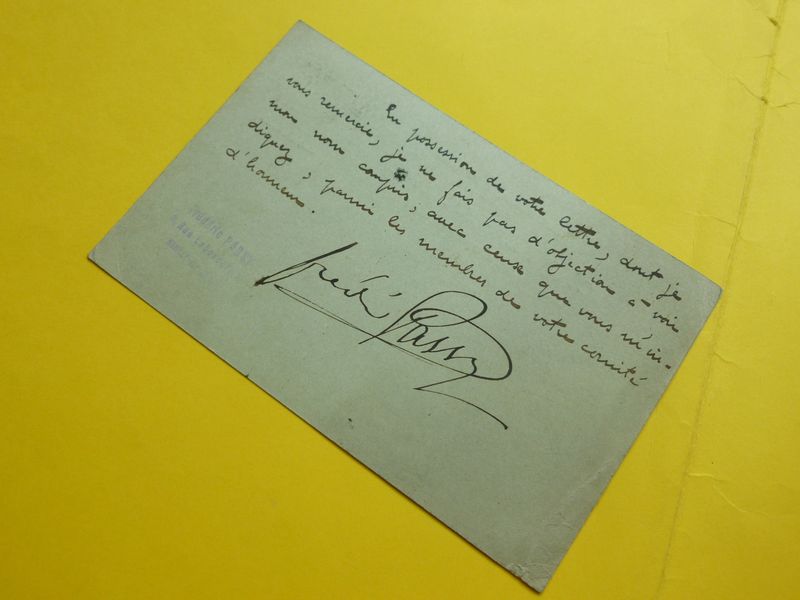 En possession de votre lettre, dont je
vous remercie, je ne fais pas d'objection à voir
mon nom compris, avec ceux que vous m'in-
diquez, parmi les membres de votre comité
d'honneur.
Frédéric Passy
PASSY